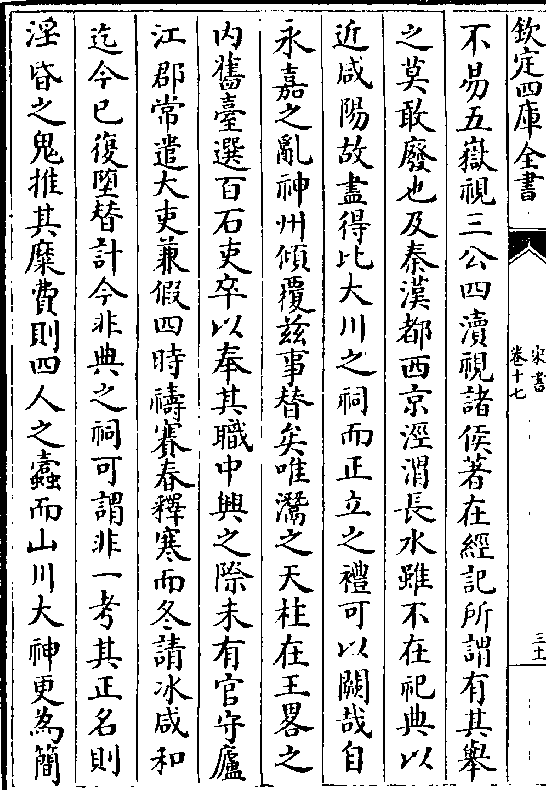 欽定四庫全書
宋書
卷十七
三十
不易五嶽視三公四瀆視諸侯著在經記所謂有其舉
之莫敢廢也及秦漢都西京涇渭長水雖不在祀典以
近咸陽故盡得比大川之祠而正立之禮可以闕哉自
永嘉之亂神州傾覆兹事替矣唯灊之天柱在王畧之
内舊臺選百石吏卒以奉其職中興之際未有官守廬
江郡常遣大吏兼假四時禱賽春釋寒而冬請冰咸和
迄今已復墮替計今非典之祠可謂非一考其正名則
淫昏之鬼推其糜費則四人之蠧而山川大神更為簡